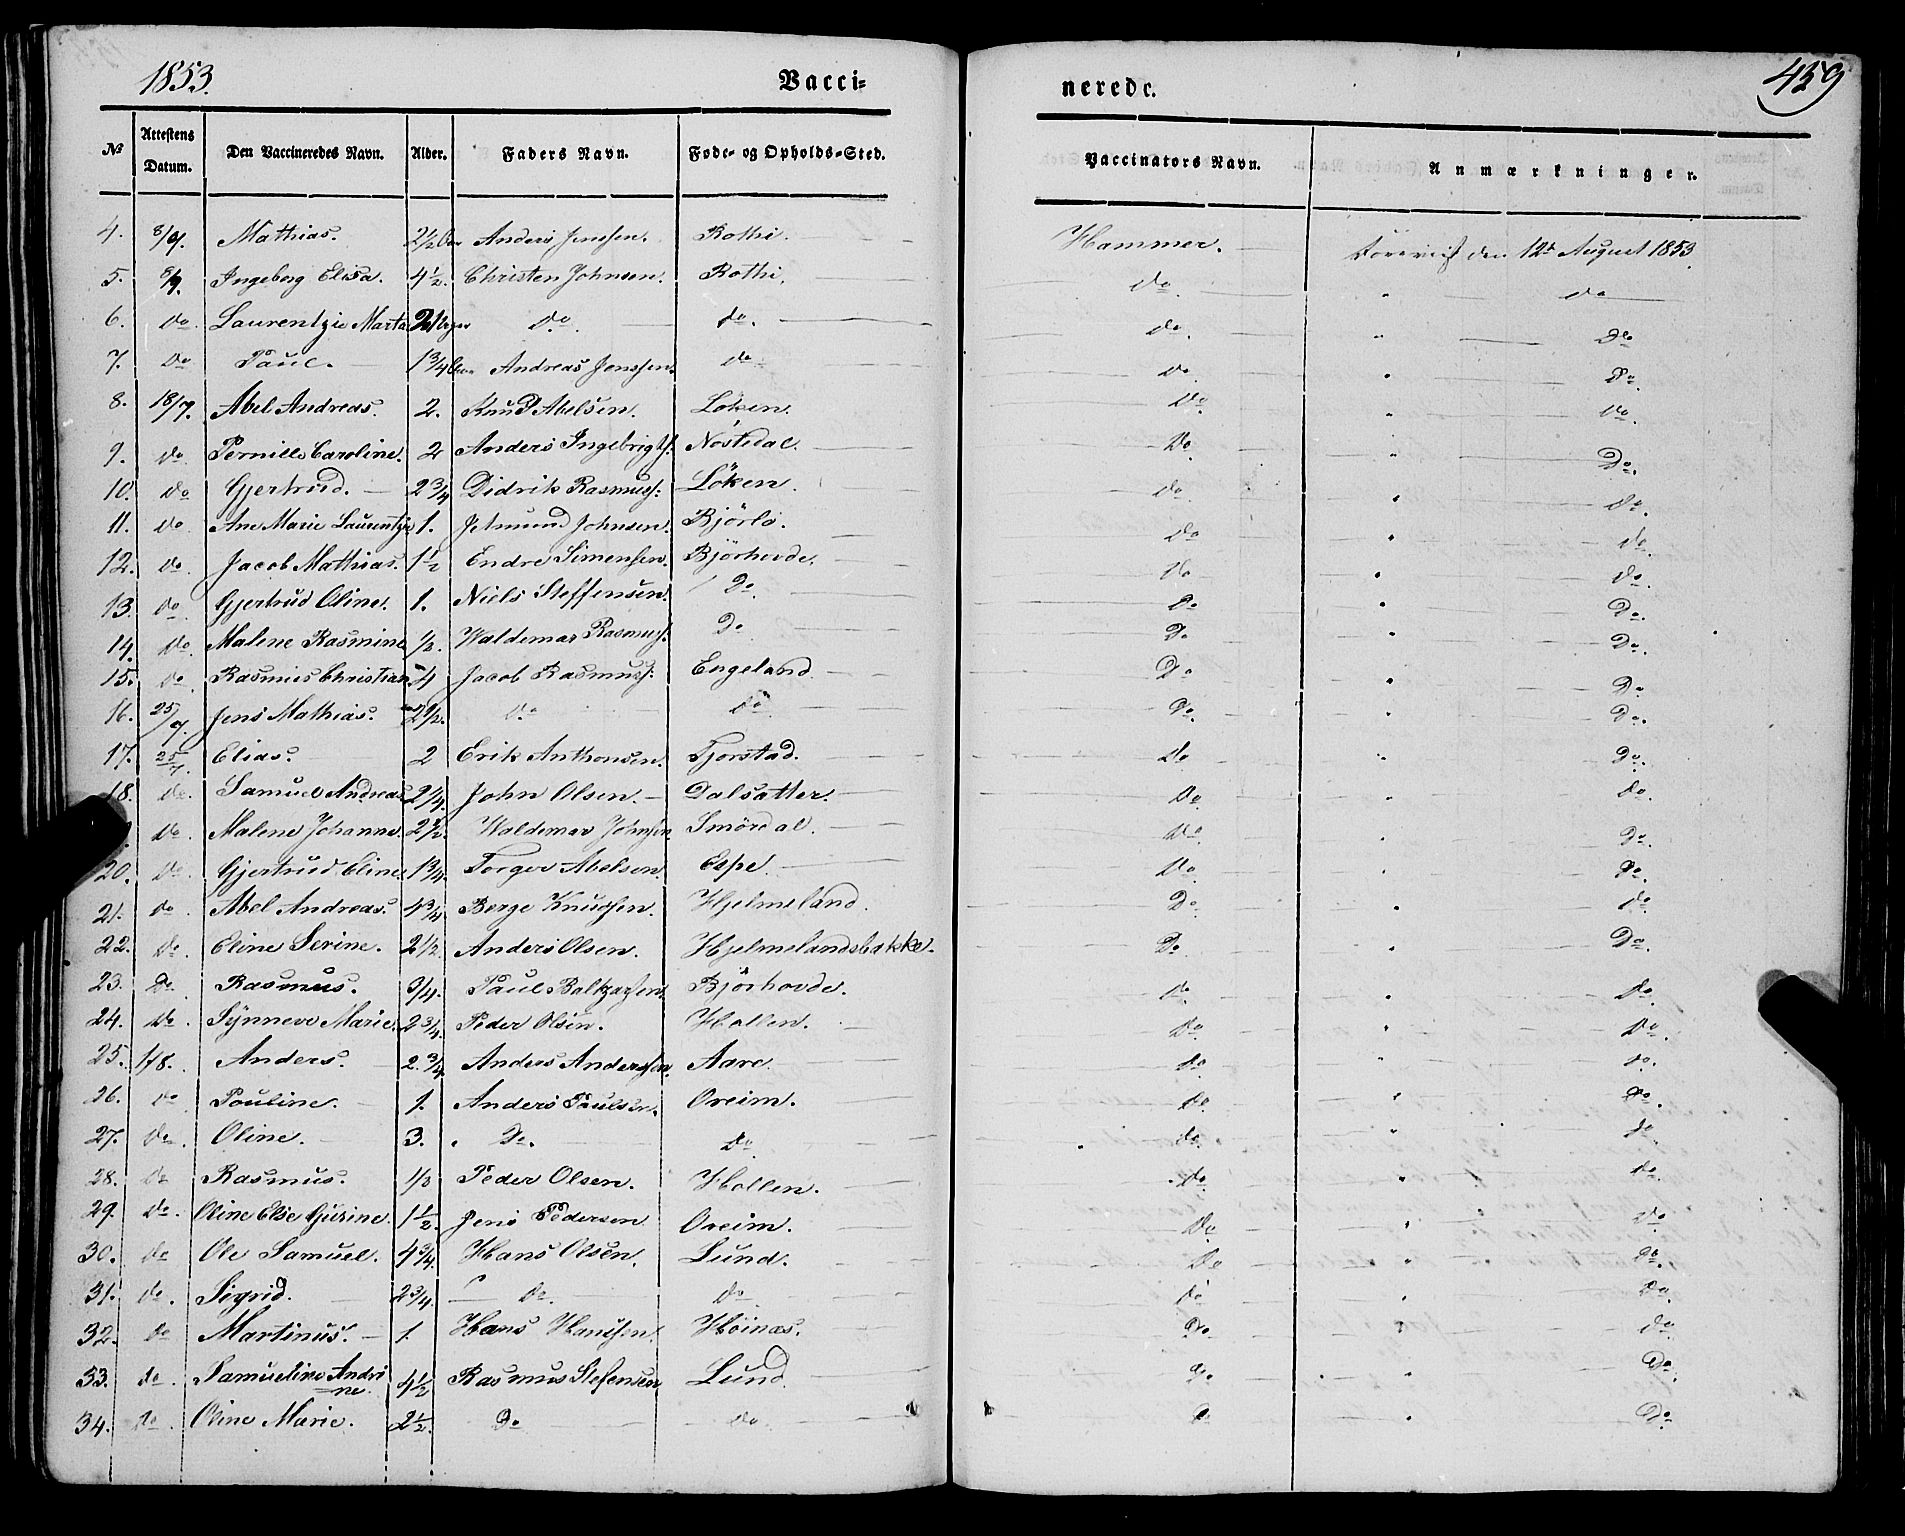 1853. Vacci= nerede. 459
No Attestens Datum. Den Vaccineredes Navn. Alder. Faders Navn. Føde- og Opholds-Sted. Vaccinators Navn. Anmærkninger.
4. 8/9. Mathias. 2 1/2 Anders Jenssen. Rothi. Hammer. den 12te August 1853.
5. 8/9. Ingeborg Elisa. 4 1/2. Christen Johnsen. Rothi. do. " do
6. do. Laurentzie Marta do. do. do. " do
7. do Paul. 1 3/4 Andreas Jenssen. do do. " do.
8. 18/7. Abel Andreas. 2. Knud Abelsen. Löken. do. " do.
9. do. Pernille Caroline. 2 Anders Ingebrigts. Nöstedal. do " do.
10. do Gjertrud. 2 3/4 Didrik Rasmuss. Löken. do. " do.
11. do Ane Marie Laurentze 1. Jetmund Johnsen. Bjørlo. do " do.
12. do. Jacob Mathias. 1 1/2 Endre Simensen. Bjørhovde. do " do.
13. do. Gjertrud Oline. 1. Niels Steffensen. do. do " do.
14. do. Malene Rasmine 1/2. Waldemar Rasmuss. do do " do.
15. do. Rasmus Christian 4 Jacob Rasmuss. Engeland do " do
16. 25/7. Jens Mathias. 2 1/2. do do do. " do.
17. 25/7. Elias. 2 Erik Anthonsen. Tjorstad. do " do.
18. do. Samuel Andreas 2 1/4. John Olsen. Dalsatter. do " do.
do. Malene Johanne. 2 1/2. Waldemar Johnsen Smördal. do. " do.
20. do. Gjertrud Eline 1 3/4. Torger Abelsen. Espe. do. " do.
21. do. Abel Andreas. 4 3/4 Berge Knudsen. Hjelmeland. do. " do.
22. do. Eline Serine. 2 1/2. Anders Olsen. Hjelmelandsbakke. do " do.
23. do. Rasmus. 3/4. Paul Baltzarsen. Bjørhovde. do. " do.
24. do. Synneve Marie. 2 3/4. Peder Olsen. Hollen. do. " do.
25. 1/8. Anders. 2 3/4 Anders Anderssen. Aare. do " do.
26. do Pouline. 1. Anders Paulsen. Oreim. do " do.
27. do. Oline. 3. do. do do. " do.
28. do Rasmus. 1/2 Peder Olsen. Hollen. do. " do.
29. do. Oline Else Gurine. 1 1/2. Jens Pedersen Oreim. do " do.
30. do Ole Samuel. 4 3/4. Hans Olsen. Lund. do " do.
31. do. Sigrid. 2 3/4. do. do do " do
32. do Martinus. 1. Hans Hanssen. Höinæs. do. " do.
33. do. Samueline Andri
ne. 4 1/2 Rasmus Stefensen Lund. do. " do.
34. do. Oline Marie. 2 1/2. do do. do " do.